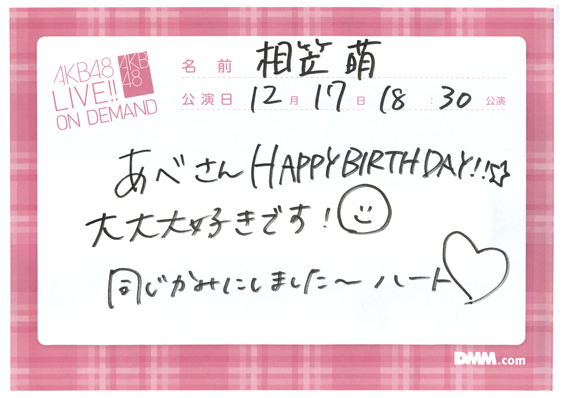 AKB48
LIVE!!
ON DEMAND
AKB
48
名前 相笠 萌
公演日 12月17日 18:30公演
あべさん HAPPY BIRTHDAY!!☆
大大大好きです!
同じかみにしました〜 ハート
DMM.com